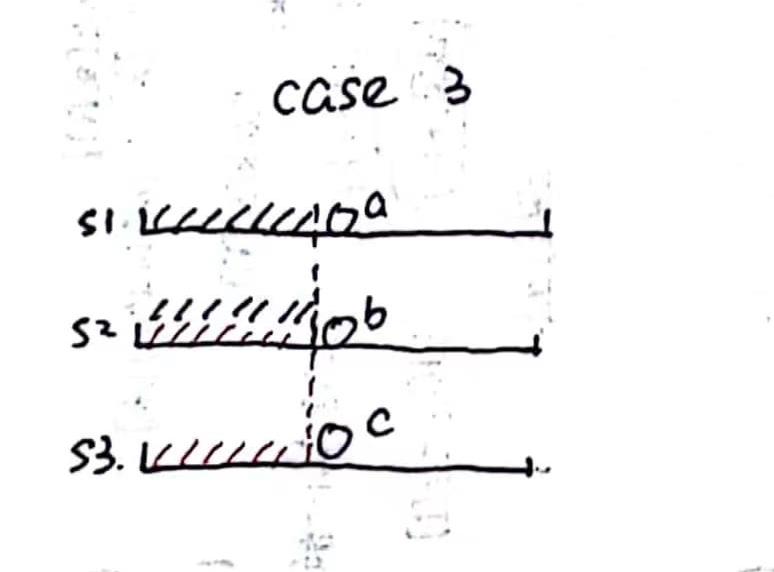 case 3
S1. a
S2 b
S3. c